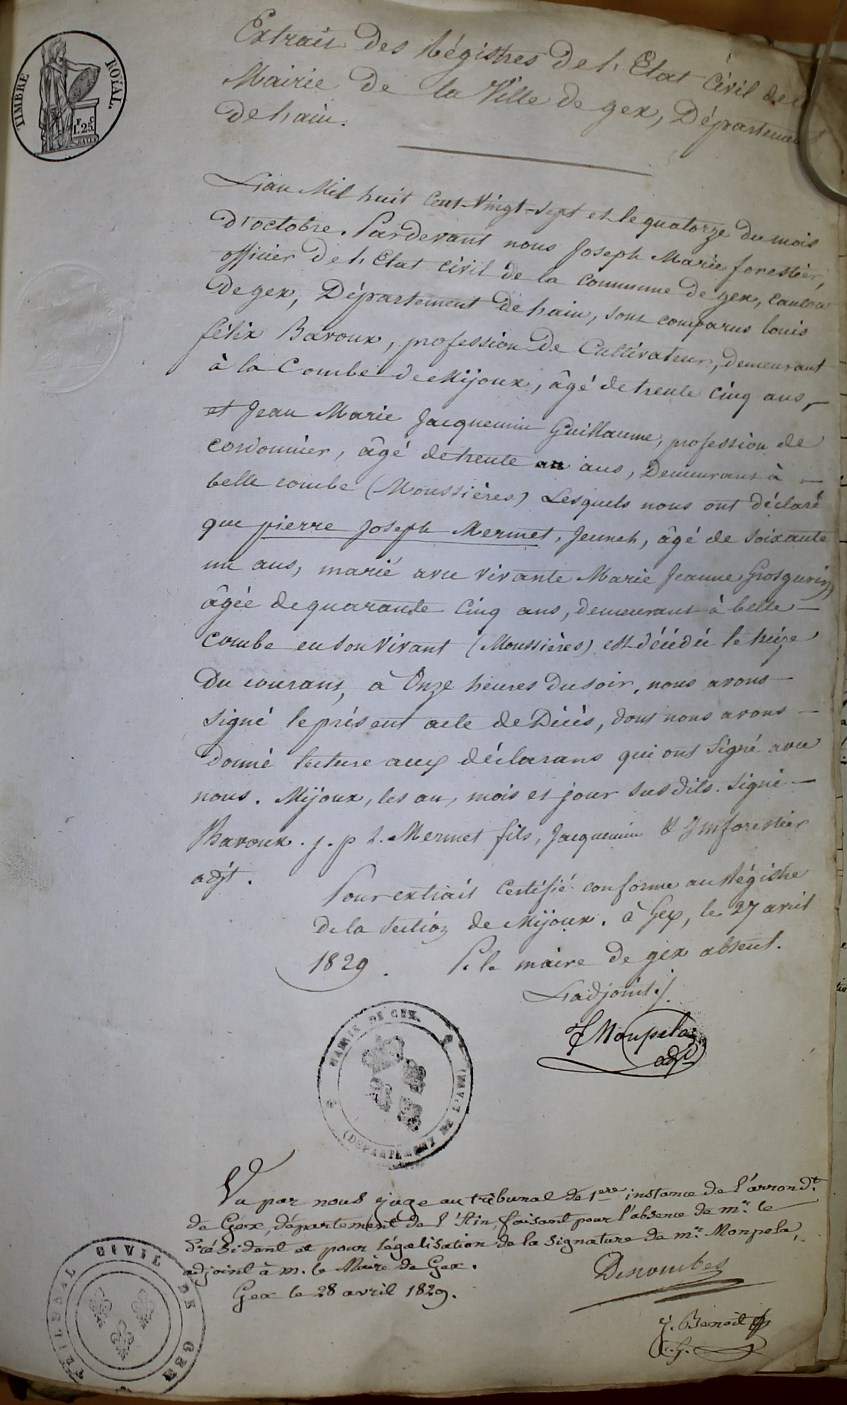 TIMBRE ROYAL
1F 25C
Extrait des Régistres de l'Etat Civil de la
Mairie de la Ville de gex, Département
de hain.
L'an Mil huit Cent-Vingt-Sept et le quatorze du mois
d'octobre. Pardevant nous Joseph Marie forestier,
officier de l'Etat Civil de la commune de gex, canton
de gex, Département de hain, sont comparus louis
félix Baroux, profession de Cultivateur, demeurant
à la Combe de Mijoux, âgé de trente cinq ans,
et Jean Marie Jacquemin Guillaume, profession de
cordonnier, âgé de trente ans, Demeurant à
belle combe (Moussières) Lesquels nous ont déclaré
que pierre Joseph Mermet, âgé de soixante
un ans, marié avec vivante Marie Jeanne Grosgurin
âgée de quarante Cinq ans, demeurant à belle
combe en son vivant (Moussières) est décédé le treize
du courant, à Onze heures du soir, nous avons
signé le présent acte de Décès, dont nous avons
donné lecture aux déclarans qui ont signé avec
nous. Mijoux, les an, mois et jour susdits. signé
Baroux. j. p. Mermet fils, Jacquemin & Jmforestier
adjt.
Pour extrait Certifié conforme au Régistre
de la section de Mijoux. à Gex, le 27 avril
1829. P. le maire de gex absent.
L'adjoint.
Monpela
adjt
MAIRIE DE GEX.
(DEPARTEMENT DE L'AIN)
Vu par nous juge au tribunal de 1ere instance de l'arrondt.
de Gex, département de l'Ain, faisant pour l'absence de mr. le
Président et pour légalisation de la signature de mr. Monpela,
adjoint à m. le Maire de Gex.
Gex le 28 avril 1829.
Desombes
J. Benoit
TRIBUNAL CIVIL DE GEX